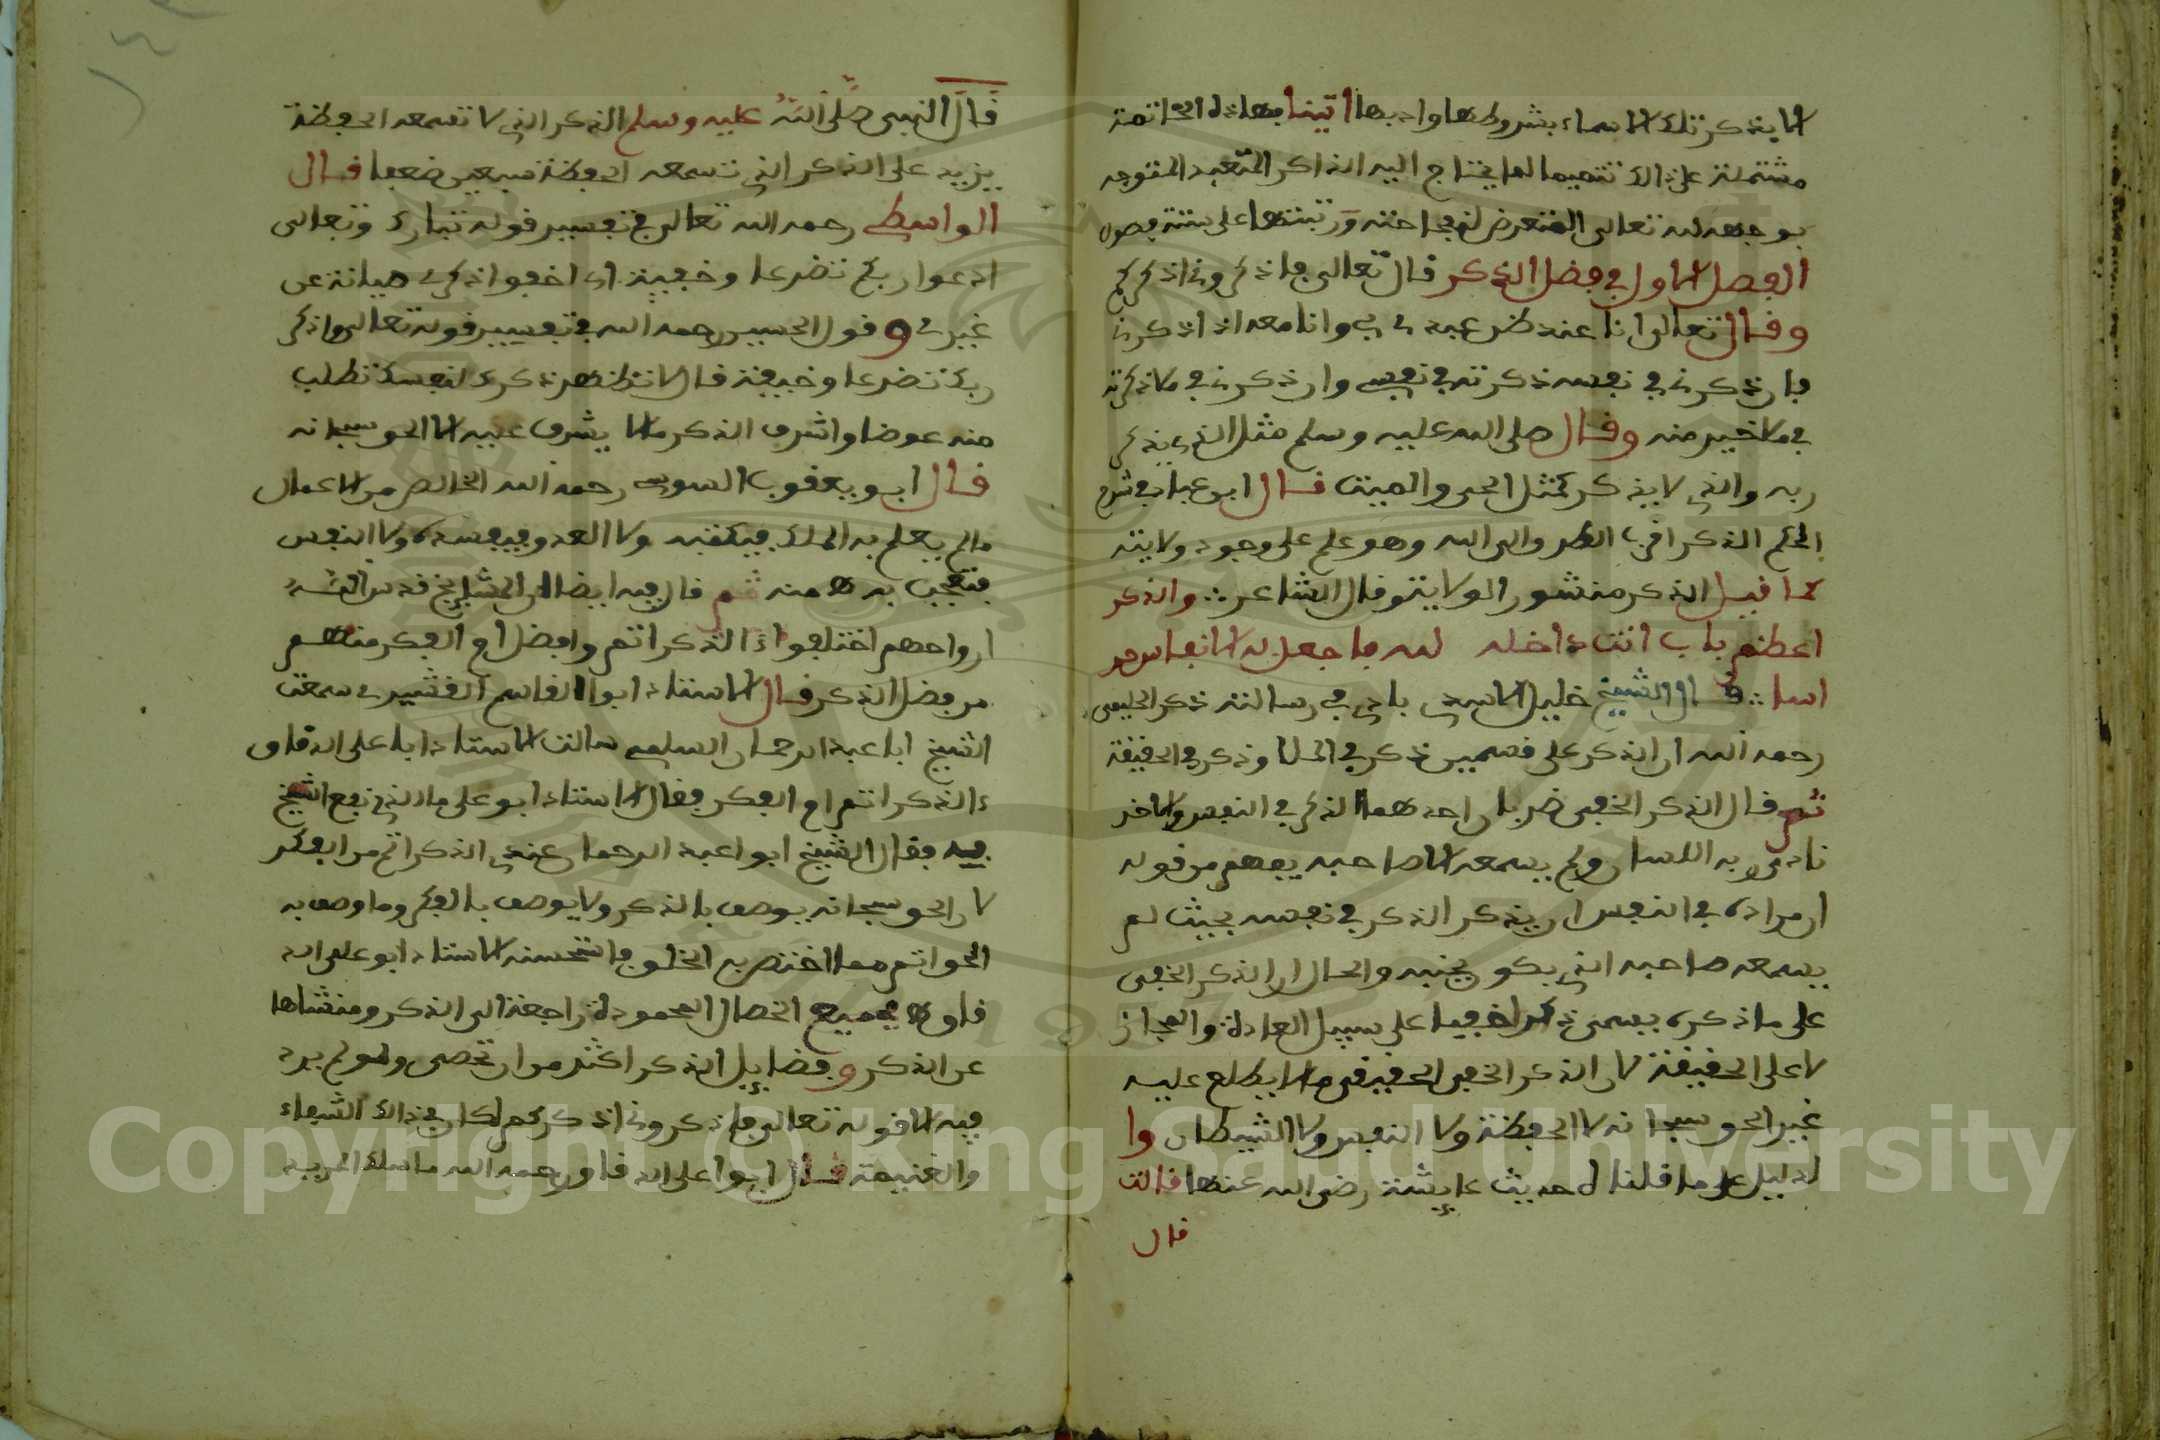 الا بذكر تلك الاسماء بشروطها وادبها اتينا بهاذه الخاتمة
مشتملة على ذالك تتميما لما يحتاج اليه الذاكر المتعبد المتوجه
بوجهه لله تعالى المتعرض لنفحاته ورتبتها على ستة فصول
الفصل الاول في فضل الذكر قال تعالى فاذكروني اذكركم
وقال تعالى انا عند ظن عبدي بي وانا معه اذا ذكرني
فان ذكرني في نفسه ذكرته في نفسي وان ذكرني في ملا ذكرته
في ملا خير منه وقال صلى الله عليه وسلم مثل الذي يذكر
ربه والذي لا يذكر كمثل الحي والميت قال ابن عباد في شرح
الحكم الذكر اقرب الطرق الى الله وهو علم على وجود ولايته
كما قيل الذكر منشور الولاية وقال الشاعر والذكر
اعظم باب انت داخله لله فاجعل له الانفاس حر
اسا قال الشيخ خليل الاسدي بادي في رسالته ذكر الجليس
رحمه الله ان الذكر على قسمين ذكر في الملا وذكر في الحقيقة
ثم قال الذكر الخفي ضربان احدهما الذكر في النفس والاخر
نادى ربه اللسان ولم يسمعه الا صاحبه يفهم من قوله
ان مراده في النفس ان يذكر الذكر في نفسه بحيث لم
يسمعه صاحبه الذي يكون بجنبه والحال ان الذكر الخفي
على ما ذكره يسمى ذكرا خفيا على سبيل العادة والمجاز
لا على الحقيقة لان الذكر الخفي الحقيقي ما لا يطلع عليه
غير الحق سبحانه لا الحفظة ولا النفس ولا الشيطان وا
لدليل على ما قلنا لحديث عايشة رضي الله عنها قالت
قال
قال النبي صلى الله عليه وسلم الذكر الذي لا تسمعه الحفظة
يزيد على الذكر الذي تسمعه الحفظة سبعين ضعفا قال
الواسطي رحمه الله تعالى في تفسير قوله تبارك وتعالى
ادعوا ربكم تضرعا وخفية اي اخفوا ذكري صيانة عن
غيري وقول الحسين رحمه الله في تفسير قوله تعالى واذكر
ربك تضرعا وخيفة قال لا تظهر ذكرك لنفسك تطلب
منه عوضا واشرف الذكر ما لا يشرف عليه الا الحق سبحانه
قال ابو يعقوب السوسي رحمه الله الخالص من الاعمال
ما لم يعلم به الملك فيكتبه ولا العدو فيفسده ولا النفس
فتعجب به ه منه ثم قال فيه ايضا ان المشايخ قدس الله
ارواحهم اختلفوا االذكر اتم وافضل ام الفكر منهم
من فضل الذكر قال الاستاذ ابو القاسم القشيري سمعت
الشيخ ابا عبد الرحمان السلمي سالت الاستاذ ابا علي الدقاق
االذكر اتم ام الفكر فقال الاستاذ ابو علي ما الذي يقع الشيخ
فيه فقال الشيخ ابو عبد الرحمان عندي الذكر اتم من الفكر
لان الحق سبحانه يوصف بالذكر ولا يوصف بالفكر وما وصف به
الحق اتم مما اختص به الخلق فاستحسنه الاستاذ ابو علي الد
قاق ه فجميع الخصال المحمودة راجعة الى الذكر ومنشاها
عن الذكر وفضايل الذكر اكثر من ان تحصى ولو لم يرد
فيه الا قوله تعالى فاذكروني اذكركم لكان في ذالك الشفاء
والغنيمة قال ابوا علي الدقاق رحمه الله ما سلك المريد